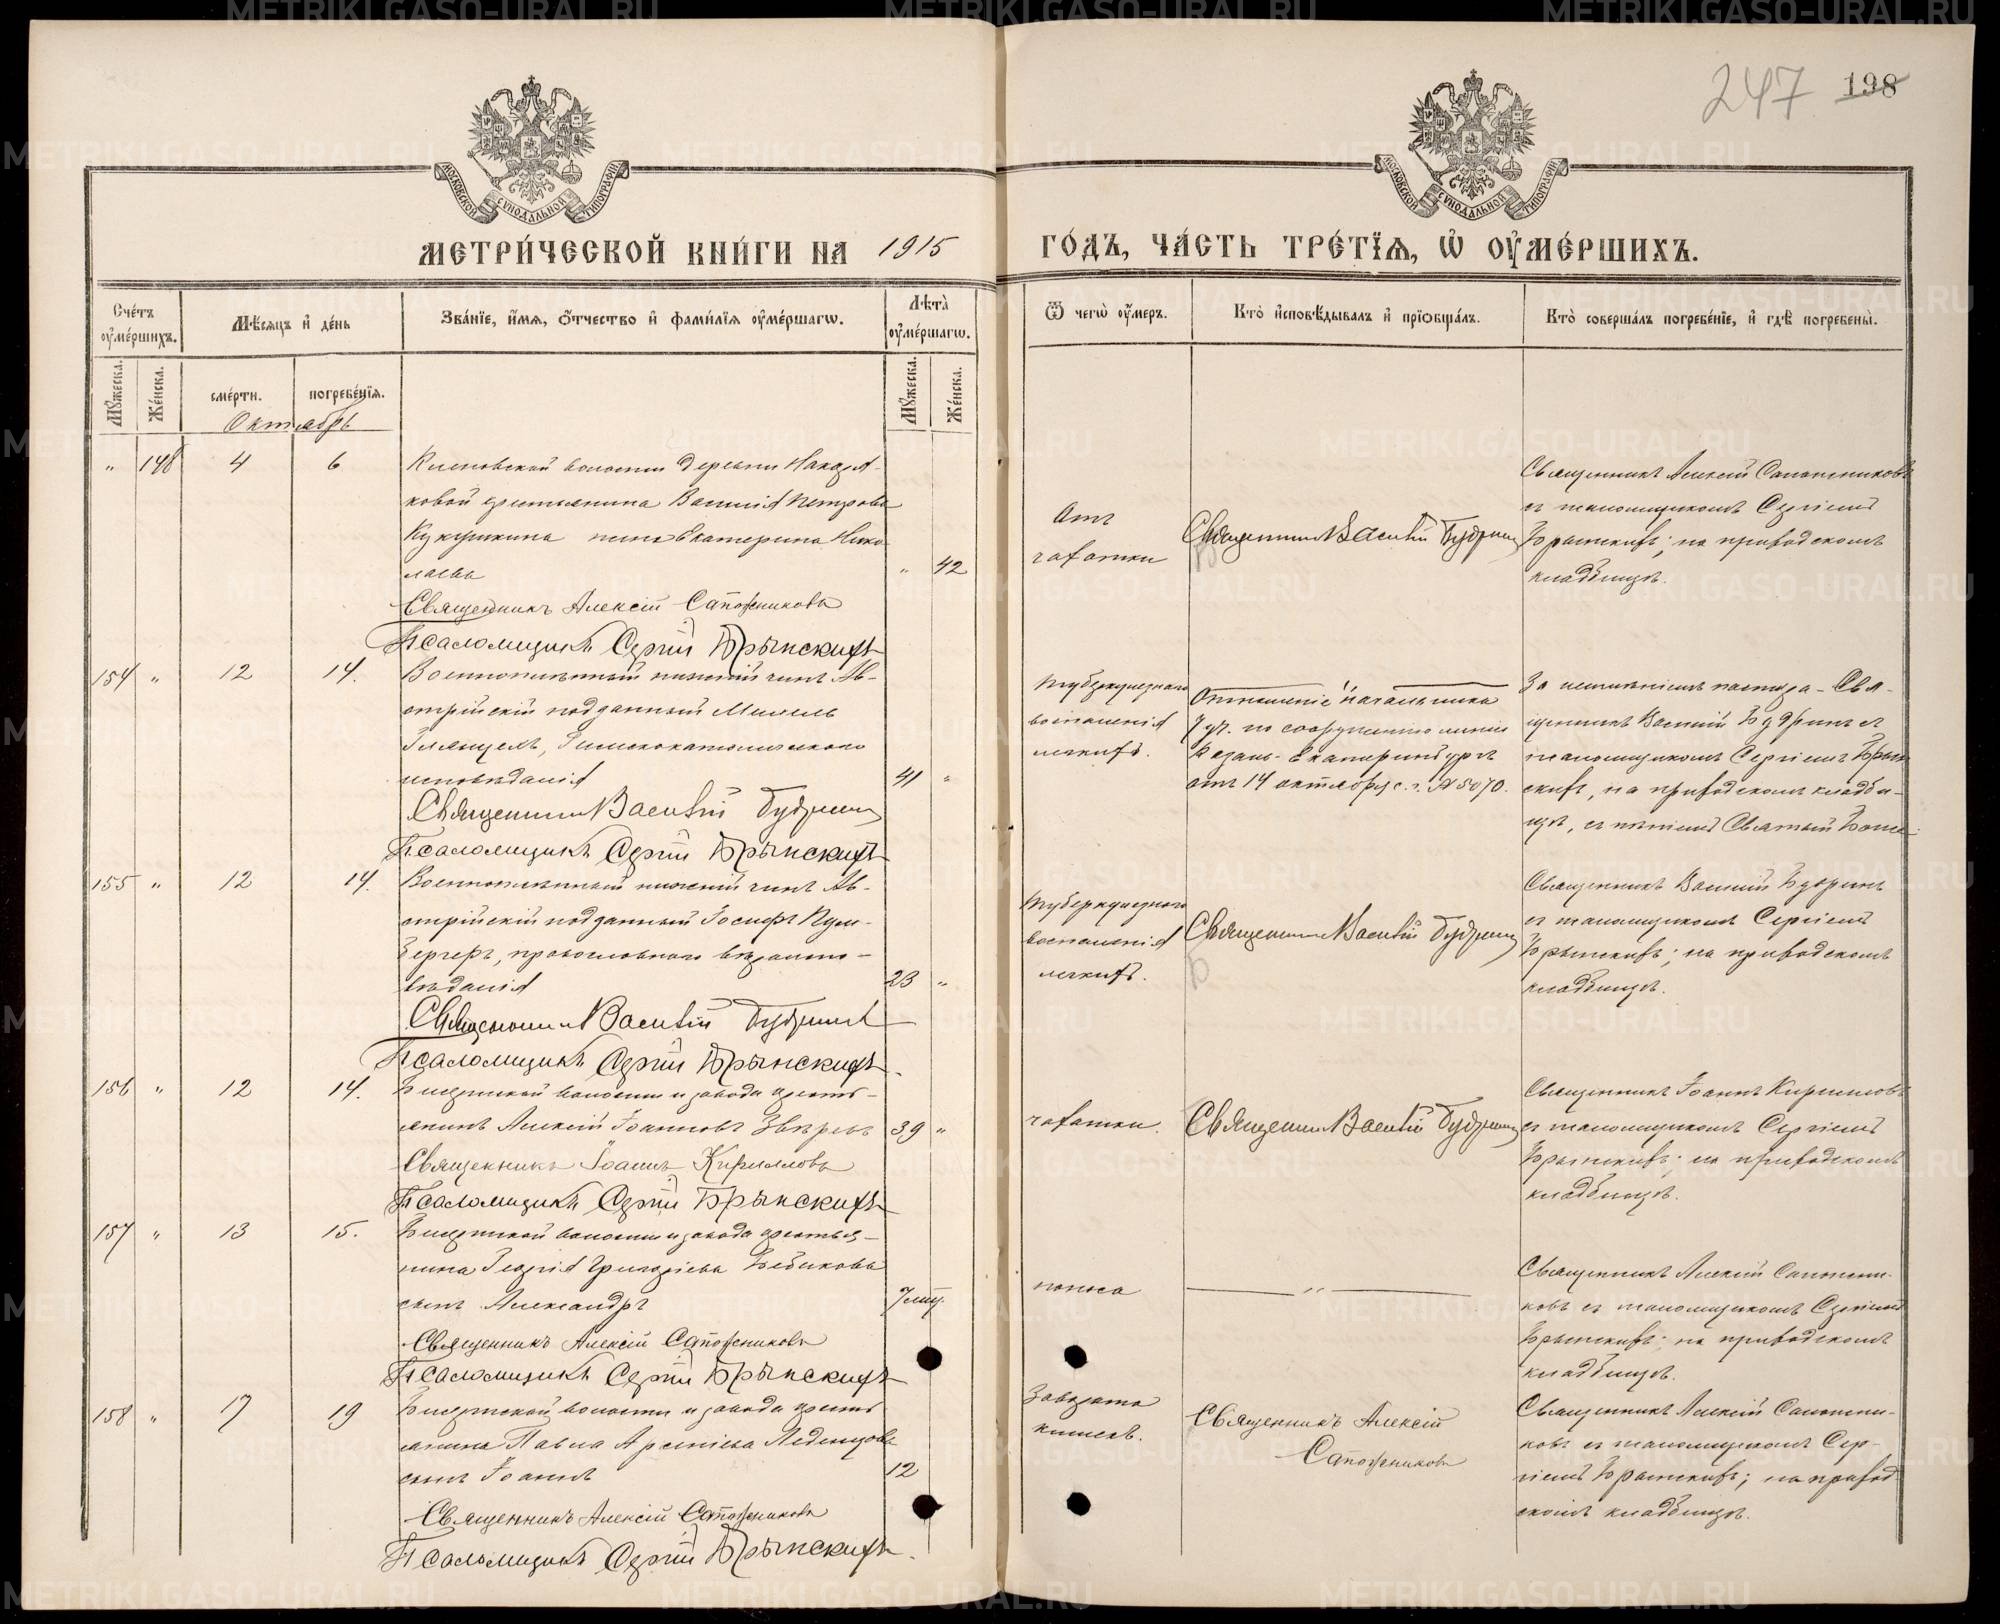 247 198
МОСКОВСКОЙ СѴНОДАЛЬНОЙ ТИПОГРАФІИ
МОСКОВСКОЙ СѴНОДАЛЬНОЙ ТИПОГРАФІИ
МЕТРИ́ЧЕСКОЙ КНИ́ГИ НА 1915 ГО́ДЪ, ЧА́СТЬ ТРЕ́ТЇѦ, Ѡ҆ ОУ҆МЕ́РШИХЪ.
Сче́тъ оу҆ме́ршихъ.
Мѣ́сѧцъ и҆ де́нь
Зва́нїе, и҆́мѧ, ѻ҆́тчество и҆ фами́лїѧ оу҆ме́ршагѡ.
Лѣ́та оу҆ме́ршагѡ.
Ѿ чегѡ̀ оу҆́меръ.
Кто̀ и҆сповѣ́дывалъ и҆ прїѡбща́лъ.
Кто̀ соверша́лъ погребе́нїе, и҆ гдѣ̀ погребены̀.
Мꙋ́жеска.
Же́нска.
сме́рти.
погребе́нїѧ.
Мꙋ́жеска.
Же́нска.
Октябрь
„ 148 4 6
волости деревни
ковой крестьянина Василія Петрова
Кукушкина жена Екатерина Нико-
лаева „ 42
Священникъ Алексій Сапожниковъ
Псаломщикъ Сергій Брынскихъ
Отъ
чахотки
Священникъ Василій Будринъ
Священникъ Алексій Сапожниковъ
съ псаломщикомъ Сергіемъ
Брынскихъ; на приходскомъ
кладбищѣ.
154 „ 12 14.
Военноплѣнный нижній чинъ Ав-
стрійскій подданный
Римскокатолическаго
исповѣданія 41 „
Священникъ Василій Будринъ
Псаломщикъ Сергій Брынскихъ
Туберкулезнаго
воспаленія
легкихъ.
Отношеніе начальника
7 уч. по сооруженію линіи
Казань-Екатеринбургъ
отъ 14 октября с. г. № 5070.
За неимѣніемъ пастора - Свя-
щенникъ Василій Будринъ съ
псаломщикомъ Сергіемъ Брын-
скихъ, на приходскомъ кладби-
щѣ, съ пѣніемъ Святый Боже
155 „ 12 14.
Военноплѣнный нижній чинъ Ав-
стрійскій подданный Іосифъ
православнаго
вѣданія 23 „
Священникъ Василій Будринъ
Псаломщикъ Сергій Брынскихъ
Туберкулезнаго
воспаленія
легкихъ.
Священникъ Василій Будринъ
Священникъ Василій Будринъ
съ псаломщикомъ Сергіемъ
Брынскихъ; на приходскомъ
кладбищѣ.
156 „ 12 14.
Бисертской волости и завода кресть-
янинъ Алексій Іоанновъ Звѣревъ 39 „
Священникъ Іоаннъ Кирилловъ
Псаломщикъ Сергій Брынскихъ
чахотки.
Священникъ Василій Будринъ
Священникъ Іоаннъ Кирилловъ
съ псаломщикомъ Сергіемъ
Брынскихъ; на приходскомъ
кладбищѣ.
157 „ 13 15.
Бисертской волости и завода крестья-
нина Георгія Григоріева Бебикова
сынъ Александръ 7 мѣс.
Священникъ Алексій Сапожниковъ
Псаломщикъ Сергій Брынскихъ
поноса
— „ —
Священникъ Алексій Сапожни-
ковъ съ псаломщикомъ Сергіемъ
Брынскихъ; на приходскомъ
кладбищѣ.
158 „ 17 19
Бисертской волости и завода кресть-
янина Павла Арсеніева Леденцова
сынъ Іоаннъ 12
Священникъ Алексій Сапожниковъ
Псаломщикъ Сергій Брынскихъ.
Заворота
кишекъ.
Священникъ Алексій
Сапожниковъ
Священникъ Алексій Сапожни-
ковъ съ псаломщикомъ Сер-
гіемъ Брынскихъ; на приход-
скомъ кладбищѣ.
METRIKI.GASO-URAL.RU